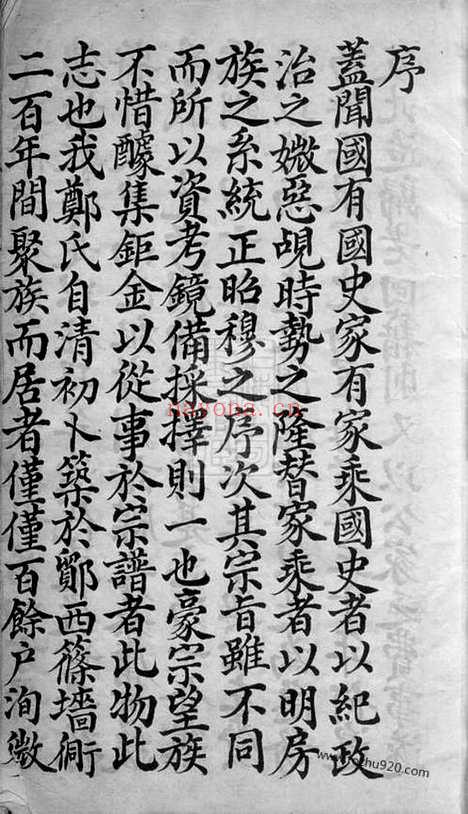 序
蓋聞國有國史家有家乘國史者以紀政
治之媺惡覘時勢之隆替家乘者以明房
族之系統正昭穆之序次其宗旨雖不同
而所以資考鏡備採擇則一也豪宗望族
不惜醵集鉅金以從事於宗譜者此物此
志也我鄭氏自清初卜築於鄞西篠墻衕
二百年間聚族而居者僅僅百餘户洵微
nayona.cn
shu920.com